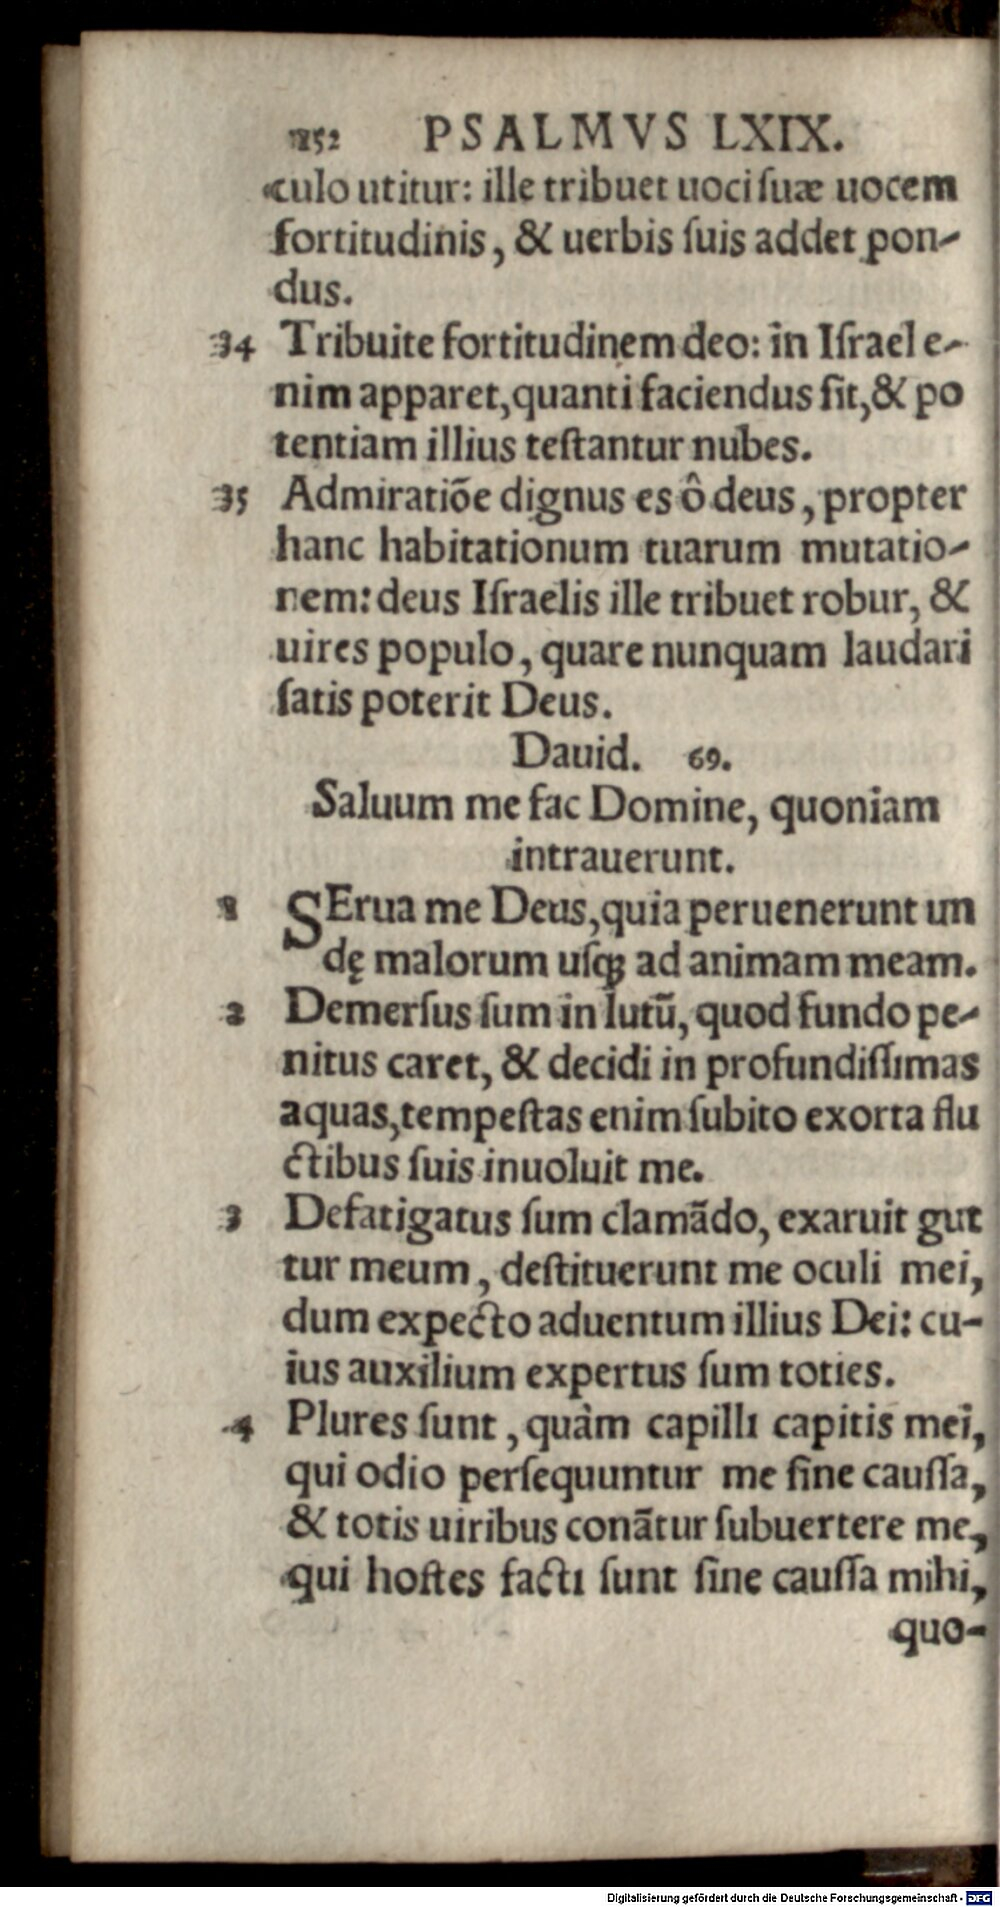 152 PSALMVS LXIX.
culo utitur: ille tribuet uoci ſuæ uocem
fortitudinis, & uerbis ſuis addet pon-
dus.
34 Tribuite fortitudinem deo: in Iſrael e-
nim apparet, quanti faciendus ſit, & po
tentiam illius teſtantur nubes.
35 Admiratiõe dignus es ô deus, propter
hanc habitationum tuarum mutatio-
nem: deus Iſraelis ille tribuet robur, &
uires populo, quare nunquam laudari
ſatis poterit Deus.
Dauid. 69.
Saluum me fac Domine, quoniam
intrauerunt.
1 SErua me Deus, quia peruenerunt un
dę malorum uſq; ad animam meam.
2 Demerſus ſum in lutũ, quod fundo pe-
nitus caret, & decidi in profundiſſimas
aquas, tempeſtas enim ſubito exorta flu
ctibus ſuis inuoluit me.
3 Defatigatus ſum clamãdo, exaruit gut
tur meum, deſtituerunt me oculi mei,
dum expecto aduentum illius Dei: cu-
ius auxilium expertus ſum toties.
4 Plures ſunt, quàm capilli capitis mei,
qui odio perſequuntur me ſine cauſſa,
& totis uiribus conãtur ſubuertere me,
qui hoſtes facti ſunt ſine cauſſa mihi,
quo-
Digitalisierung gefördert durch die Deutsche Forschungsgemeinschaft - DFG